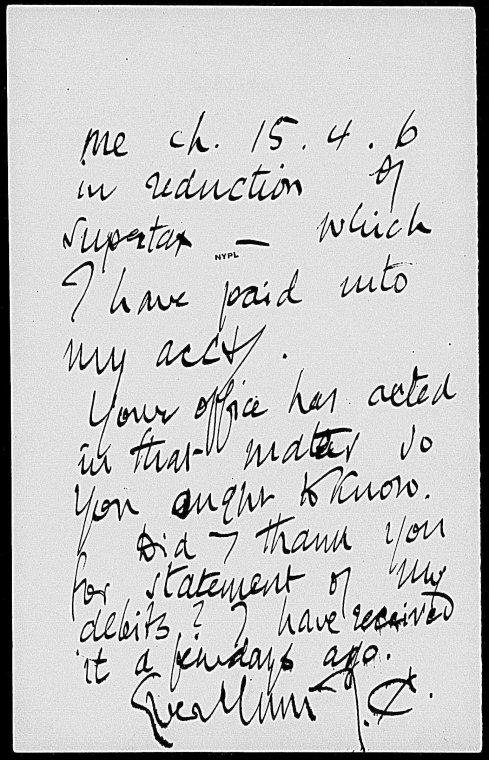 me ch. 15.4.6
in reduction of
supertax — which
NYPL
I have paid into
my acct.
Your office has acted
in that matter so
you ought to know.
Did I thank you
for statement of my
debits? I have received
it a few days ago.
J.C.